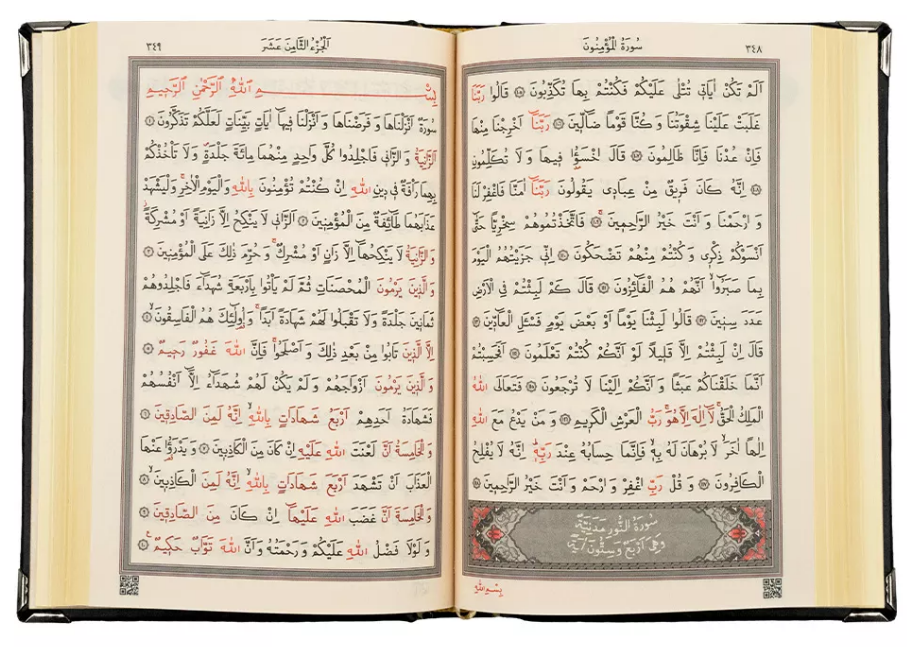 سُورَةُ الْمُؤْمِنُونَ
٣٤٨
اَلَمْ تَكُنْ اٰيَات۪ى تُتْلٰى عَلَيْكُمْ فَكُنْتُمْ بِهَا تُكَذِّبُونَ ﴿١٠٥﴾ قَالُوا رَبَّنَا
غَلَبَتْ عَلَيْنَا شِقْوَتُنَا وَكُنَّا قَوْمًا ضَٓالّ۪ينَ ﴿١٠٦﴾ رَبَّنَٓا اَخْرِجْنَا مِنْهَا
فَاِنْ عُدْنَا فَاِنَّا ظَالِمُونَ ﴿١٠٧﴾ قَالَ اخْسَؤُ۫ا ف۪يهَا وَلَا تُكَلِّمُونِ
﴿١٠٨﴾ اِنَّهُ كَانَ فَر۪يقٌ مِنْ عِبَاد۪ى يَقُولُونَ رَبَّنَٓا اٰمَنَّا فَاغْفِرْ لَنَا
وَارْحَمْنَا وَاَنْتَ خَيْرُ الرَّاحِم۪ينَ ﴿١٠٩﴾ فَاتَّخَذْتُمُوهُمْ سِخْرِيًّا حَتّٰٓى
اَنْسَوْكُمْ ذِكْر۪ى وَكُنْتُمْ مِنْهُمْ تَضْحَكُونَ ﴿١١٠﴾ اِنّ۪ى جَزَيْتُهُمُ الْيَوْمَ
بِمَا صَبَرُٓوا اَنَّهُمْ هُمُ الْفَٓائِزُونَ ﴿١١١﴾ قَالَ كَمْ لَبِثْتُمْ فِى الْاَرْضِ
عَدَدَ سِن۪ينَ ﴿١١٢﴾ قَالُوا لَبِثْنَا يَوْمًا اَوْ بَعْضَ يَوْمٍ فَسْـَٔلِ الْعَٓادّ۪ينَ ﴿١١٣﴾
قَالَ اِنْ لَبِثْتُمْ اِلَّا قَل۪يلًا لَوْ اَنَّكُمْ كُنْتُمْ تَعْلَمُونَ ﴿١١٤﴾ اَفَحَسِبْتُمْ
اَنَّمَا خَلَقْنَاكُمْ عَبَثًا وَاَنَّكُمْ اِلَيْنَا لَا تُرْجَعُونَ ﴿١١٥﴾ فَتَعَالَى اللّٰهُ
الْمَلِكُ الْحَقُّ لَٓا اِلٰهَ اِلَّا هُوَ رَبُّ الْعَرْشِ الْكَر۪يمِ ﴿١١٦﴾ وَمَنْ يَدْعُ مَعَ اللّٰهِ
اِلٰهًا اٰخَرَ لَا بُرْهَانَ لَهُ بِه۪ فَاِنَّمَا حِسَابُهُ عِنْدَ رَبِّه۪ اِنَّهُ لَا يُفْلِحُ
الْكَافِرُونَ ﴿١١٧﴾ وَقُلْ رَبِّ اغْفِرْ وَارْحَمْ وَاَنْتَ خَيْرُ الرَّاحِم۪ينَ ﴿١١٨﴾
سُورَةُ النُّورِ مَدَنِيَّةٌ
وَهِىَ اَرْبَعٌ وَسِتُّونَ اٰيَةً
بِسْمِ اللّٰهِ
اَلْجُزْءُ الثَّامِنَ عَشَرَ
٣٤٩
بِسْمِ اللّٰهِ الرَّحْمٰنِ الرَّح۪يمِ
سُورَةٌ اَنْزَلْنَاهَا وَفَرَضْنَاهَا وَاَنْزَلْنَا ف۪يهَٓا اٰيَاتٍ بَيِّنَاتٍ لَعَلَّكُمْ تَذَكَّرُونَ ﴿١﴾
اَلزَّانِيَةُ وَالزَّان۪ى فَاجْلِدُوا كُلَّ وَاحِدٍ مِنْهُمَا مِائَةَ جَلْدَةٍ وَلَا تَأْخُذْكُمْ
بِهِمَا رَأْفَةٌ ف۪ى د۪ينِ اللّٰهِ اِنْ كُنْتُمْ تُؤْمِنُونَ بِاللّٰهِ وَالْيَوْمِ الْاٰخِرِ وَلْيَشْهَدْ
عَذَابَهُمَا طَٓائِفَةٌ مِنَ الْمُؤْمِن۪ينَ ﴿٢﴾ اَلزَّان۪ى لَا يَنْكِحُ اِلَّا زَانِيَةً اَوْ مُشْرِكَةً
وَالزَّانِيَةُ لَا يَنْكِحُهَٓا اِلَّا زَانٍ اَوْ مُشْرِكٌ وَحُرِّمَ ذٰلِكَ عَلَى الْمُؤْمِن۪ينَ ﴿٣﴾
وَالَّذ۪ينَ يَرْمُونَ الْمُحْصَنَاتِ ثُمَّ لَمْ يَأْتُوا بِاَرْبَعَةِ شُهَدَٓاءَ فَاجْلِدُوهُمْ
ثَمَان۪ينَ جَلْدَةً وَلَا تَقْبَلُوا لَهُمْ شَهَادَةً اَبَدًا وَاُو۬لٰٓئِكَ هُمُ الْفَاسِقُونَ ﴿٤﴾
اِلَّا الَّذ۪ينَ تَابُوا مِنْ بَعْدِ ذٰلِكَ وَاَصْلَحُوا فَاِنَّ اللّٰهَ غَفُورٌ رَح۪يمٌ ﴿٥﴾
وَالَّذ۪ينَ يَرْمُونَ اَزْوَاجَهُمْ وَلَمْ يَكُنْ لَهُمْ شُهَدَٓاءُ اِلَّٓا اَنْفُسُهُمْ
فَشَهَادَةُ اَحَدِهِمْ اَرْبَعُ شَهَادَاتٍ بِاللّٰهِ اِنَّهُ لَمِنَ الصَّادِق۪ينَ ﴿٦﴾
وَالْخَامِسَةُ اَنَّ لَعْنَتَ اللّٰهِ عَلَيْهِ اِنْ كَانَ مِنَ الْكَاذِب۪ينَ ﴿٧﴾ وَيَدْرَؤُ۬ا عَنْهَا
الْعَذَابَ اَنْ تَشْهَدَ اَرْبَعَ شَهَادَاتٍ بِاللّٰهِ اِنَّهُ لَمِنَ الْكَاذِب۪ينَ ﴿٨﴾
وَالْخَامِسَةَ اَنَّ غَضَبَ اللّٰهِ عَلَيْهَٓا اِنْ كَانَ مِنَ الصَّادِق۪ينَ ﴿٩﴾
وَلَوْلَا فَضْلُ اللّٰهِ عَلَيْكُمْ وَرَحْمَتُهُ وَاَنَّ اللّٰهَ تَوَّابٌ حَك۪يمٌ ﴿١٠﴾